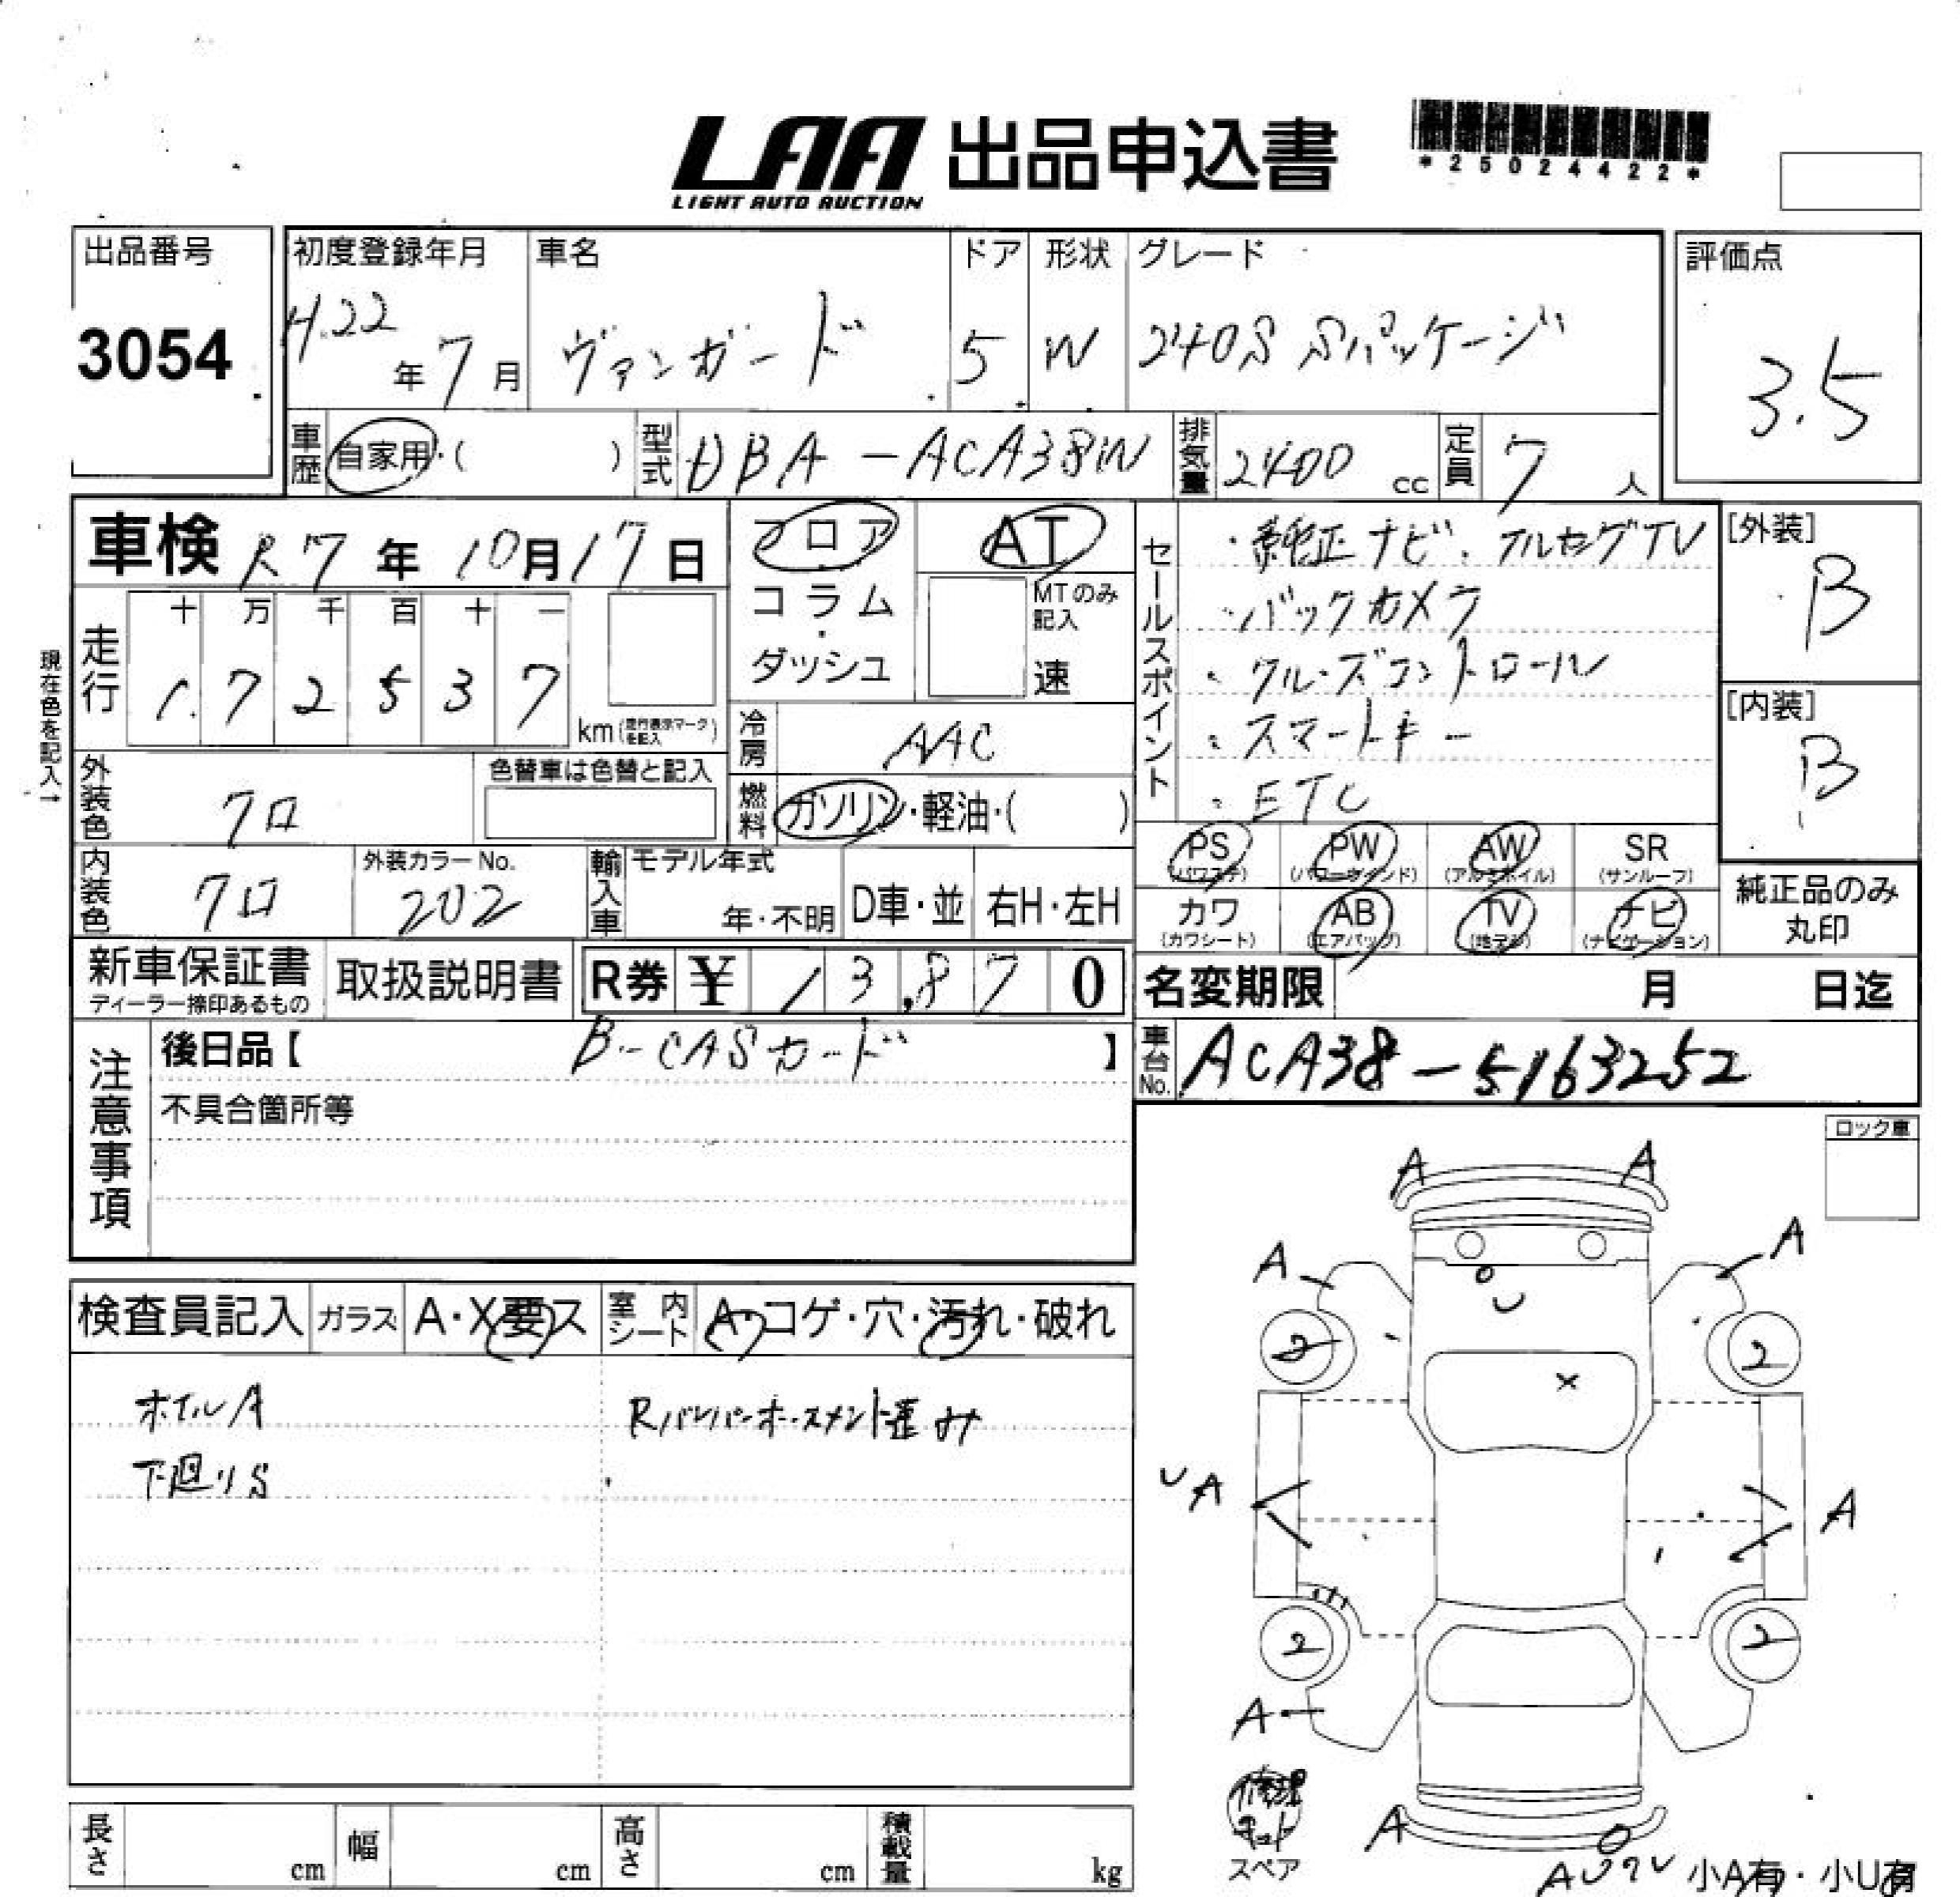 LAA 出品申込書
LIGHT AUTO AUCTION
*25024422*
出品番号
3054
初度登録年月
H.22年7月
車名
ヴァンガード
ドア
5
形状
W
グレード
240S Sパッケージ
評価点
3.5
車歴 自家用・( )
型式 DBA-ACA38W
排気量 2400 cc
定員 7 人
車検 R7年10月17日
フロア
コラム
・
ダッシュ
AT
MTのみ記入
速
セールスポイント
・純正ナビ・フルセグTV
・バックカメラ
・クルーズコントロール
・スマートキー
・ETC
[外装]
B
[内装]
B
現在色を記入→
走行
十 万 千 百 十 一
1 7 2 5 3 7
km(走行表示マークを記入)
冷房 AAC
燃料 ガソリン・軽油・( )
外装色 クロ
色替車は色替と記入
内装色 クロ
外装カラーNo.
202
輸入車
モデル年式
年・不明
D車・並
右H・左H
PS (パワステ)
PW (パワーウインド)
AW (アルミホイル)
SR (サンルーフ)
カワ (カワシート)
AB (エアバッグ)
TV (地デジ)
ナビ (ナビゲーション)
純正品のみ
丸印
新車保証書
ディーラー捺印あるもの
取扱説明書
R券 ¥ 13,870
名変期限 月 日迄
車台No. ACA38-5163252
注意事項
後日品【 B-CASカード 】
不具合箇所等
ロック車
検査員記入
ガラス A・X要ス
室内シート A・コゲ・穴・汚れ・破れ
ホイルA
下廻りS
A A
A A
2 2
×
UA A
2 2
A
A
修理
キット
スペア
小A有・小U有
長さ cm
幅 cm
高さ cm
積載量 kg